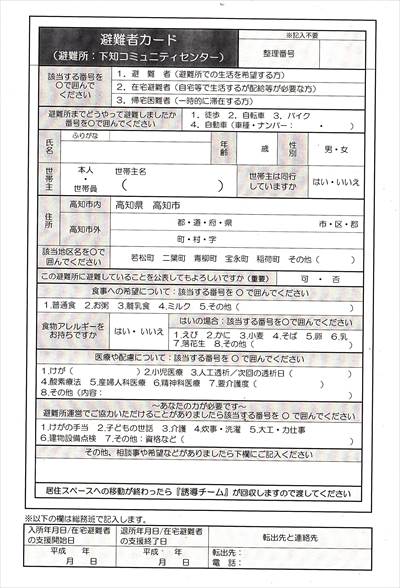 避難者カード
(避難所：下知コミュニティセンター)
※記入不要
整理番号
該当する番号を○で囲んでください
1．避 難 者（避難所での生活を希望する方）
2．在宅避難者（自宅等で生活するが配給等が必要な方）
3．帰宅困難者（一時的に滞在する方）
避難所までどうやって避難しましたか
番号を○で囲んでください
1．徒歩 2．自転車 3．バイク
4．自動車（車種・ナンバー： ・ ）
ふりがな
氏名
年齢
歳
性別
男・女
世帯主
本人・世帯員
世帯主名
( )
世帯主は同行していますか
はい・いいえ
住所
高知市内
高知県 高知市
高知市外
都・道・府・県 市・区・郡
町・村・字
該当地区名を○で囲んでください
若松町 二葉町 青柳町 宝永町 稲荷町 その他( )
この避難所に避難していることを公表してもよろしいですか（重要）
可 ・ 否
食事への希望について：該当する番号を ○ で囲んでください
1.普通食 2.お粥 3.離乳食 4.ミルク 5.その他( )
食物アレルギーをお持ちですか
はい・いいえ
はいの場合：該当する番号を○で囲んでください
1.えび 2.かに 3.小麦 4.そば 5.卵 6.乳
7.落花生 8.その他( )
医療や配慮について：該当する番号を ○ で囲んでください
1.けが( ) 2.小児医療 3.人工透析／次回の透析日( )
4.酸素療法 5.産婦人科医療 6.精神科医療 7.要介護度( )
8.その他(内容： )
～あなたの力が必要です～
避難所運営でご協力いただけることがありましたら該当する番号を ○ で囲んでください
1.けがの手当 2.子どもの世話 3.介護 4.炊事・洗濯 5.大工・力仕事
6.建物設備点検 7.その他：資格など( )
その他、相談事や希望などがありましたら下欄にご記入ください
居住スペースへの移動が終わったら『誘導チーム』が回収しますので渡してください
※以下の欄は総務班で記入します。
入所年月日/在宅避難者の支援開始日
退所年月日/在宅避難者の支援終了日
転出先と連絡先
平成 年
月 日
平成 年
月 日
転出先：
電 話：